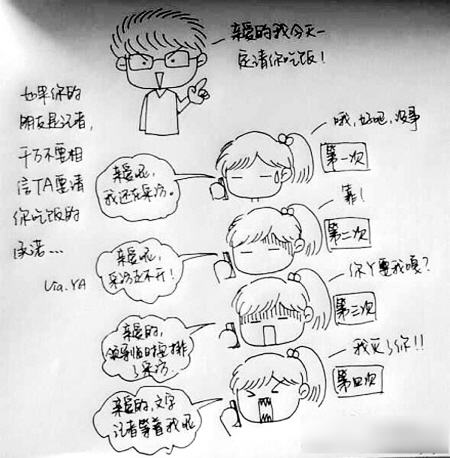 亲爱的我今天一
定请你吃饭！
如果你的
朋友是记者，
千万不要相
信TA要请
你吃饭的
承诺...
via.YA
哦，好吧，没事
第一次
亲爱哒，
我还在采访。
靠！
第二次
亲爱哒，
采访还不开！
你丫耍我嘎？
第三次
亲爱的，
领导临时安排
了采访
我灭了你！！
第四次
亲爱的，文字
记者等着我呢